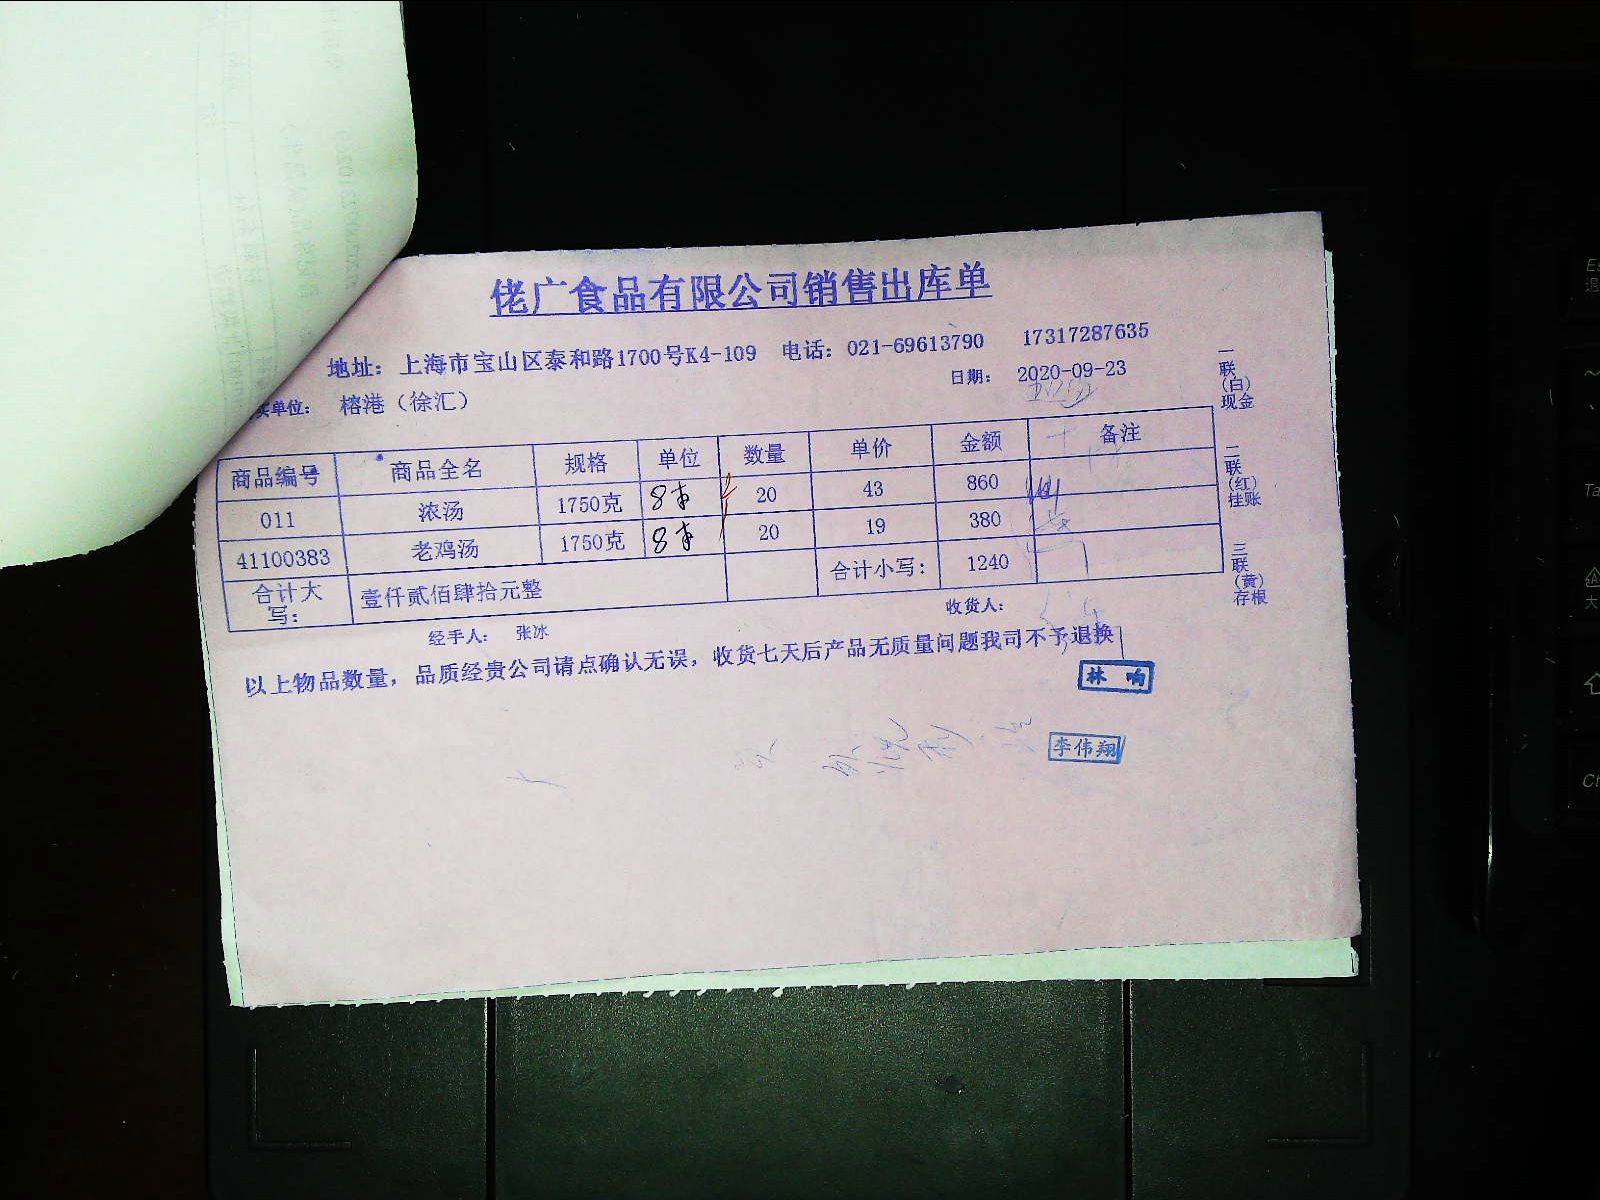 佬广食品有限公司销售出库单
地址：上海市宝山区泰和路1700号K4-109 电话：021-69613790 17317287635
日期： 2020-09-23
卖单位： 榕港（徐汇）
商品编号 商品全名 规格 单位 数量 单价 金额 备注
011 浓汤 1750克 20 43 860
41100383 老鸡汤 1750克 20 19 380
合计大写： 壹仟贰佰肆拾元整 合计小写： 1240
经手人： 张冰 收货人：
以上物品数量，品质经贵公司请点确认无误，收货七天后产品无质量问题我司不予退换
林 响
李伟翔
一联（白）现金
二联（红）挂账
三联（黄）存根